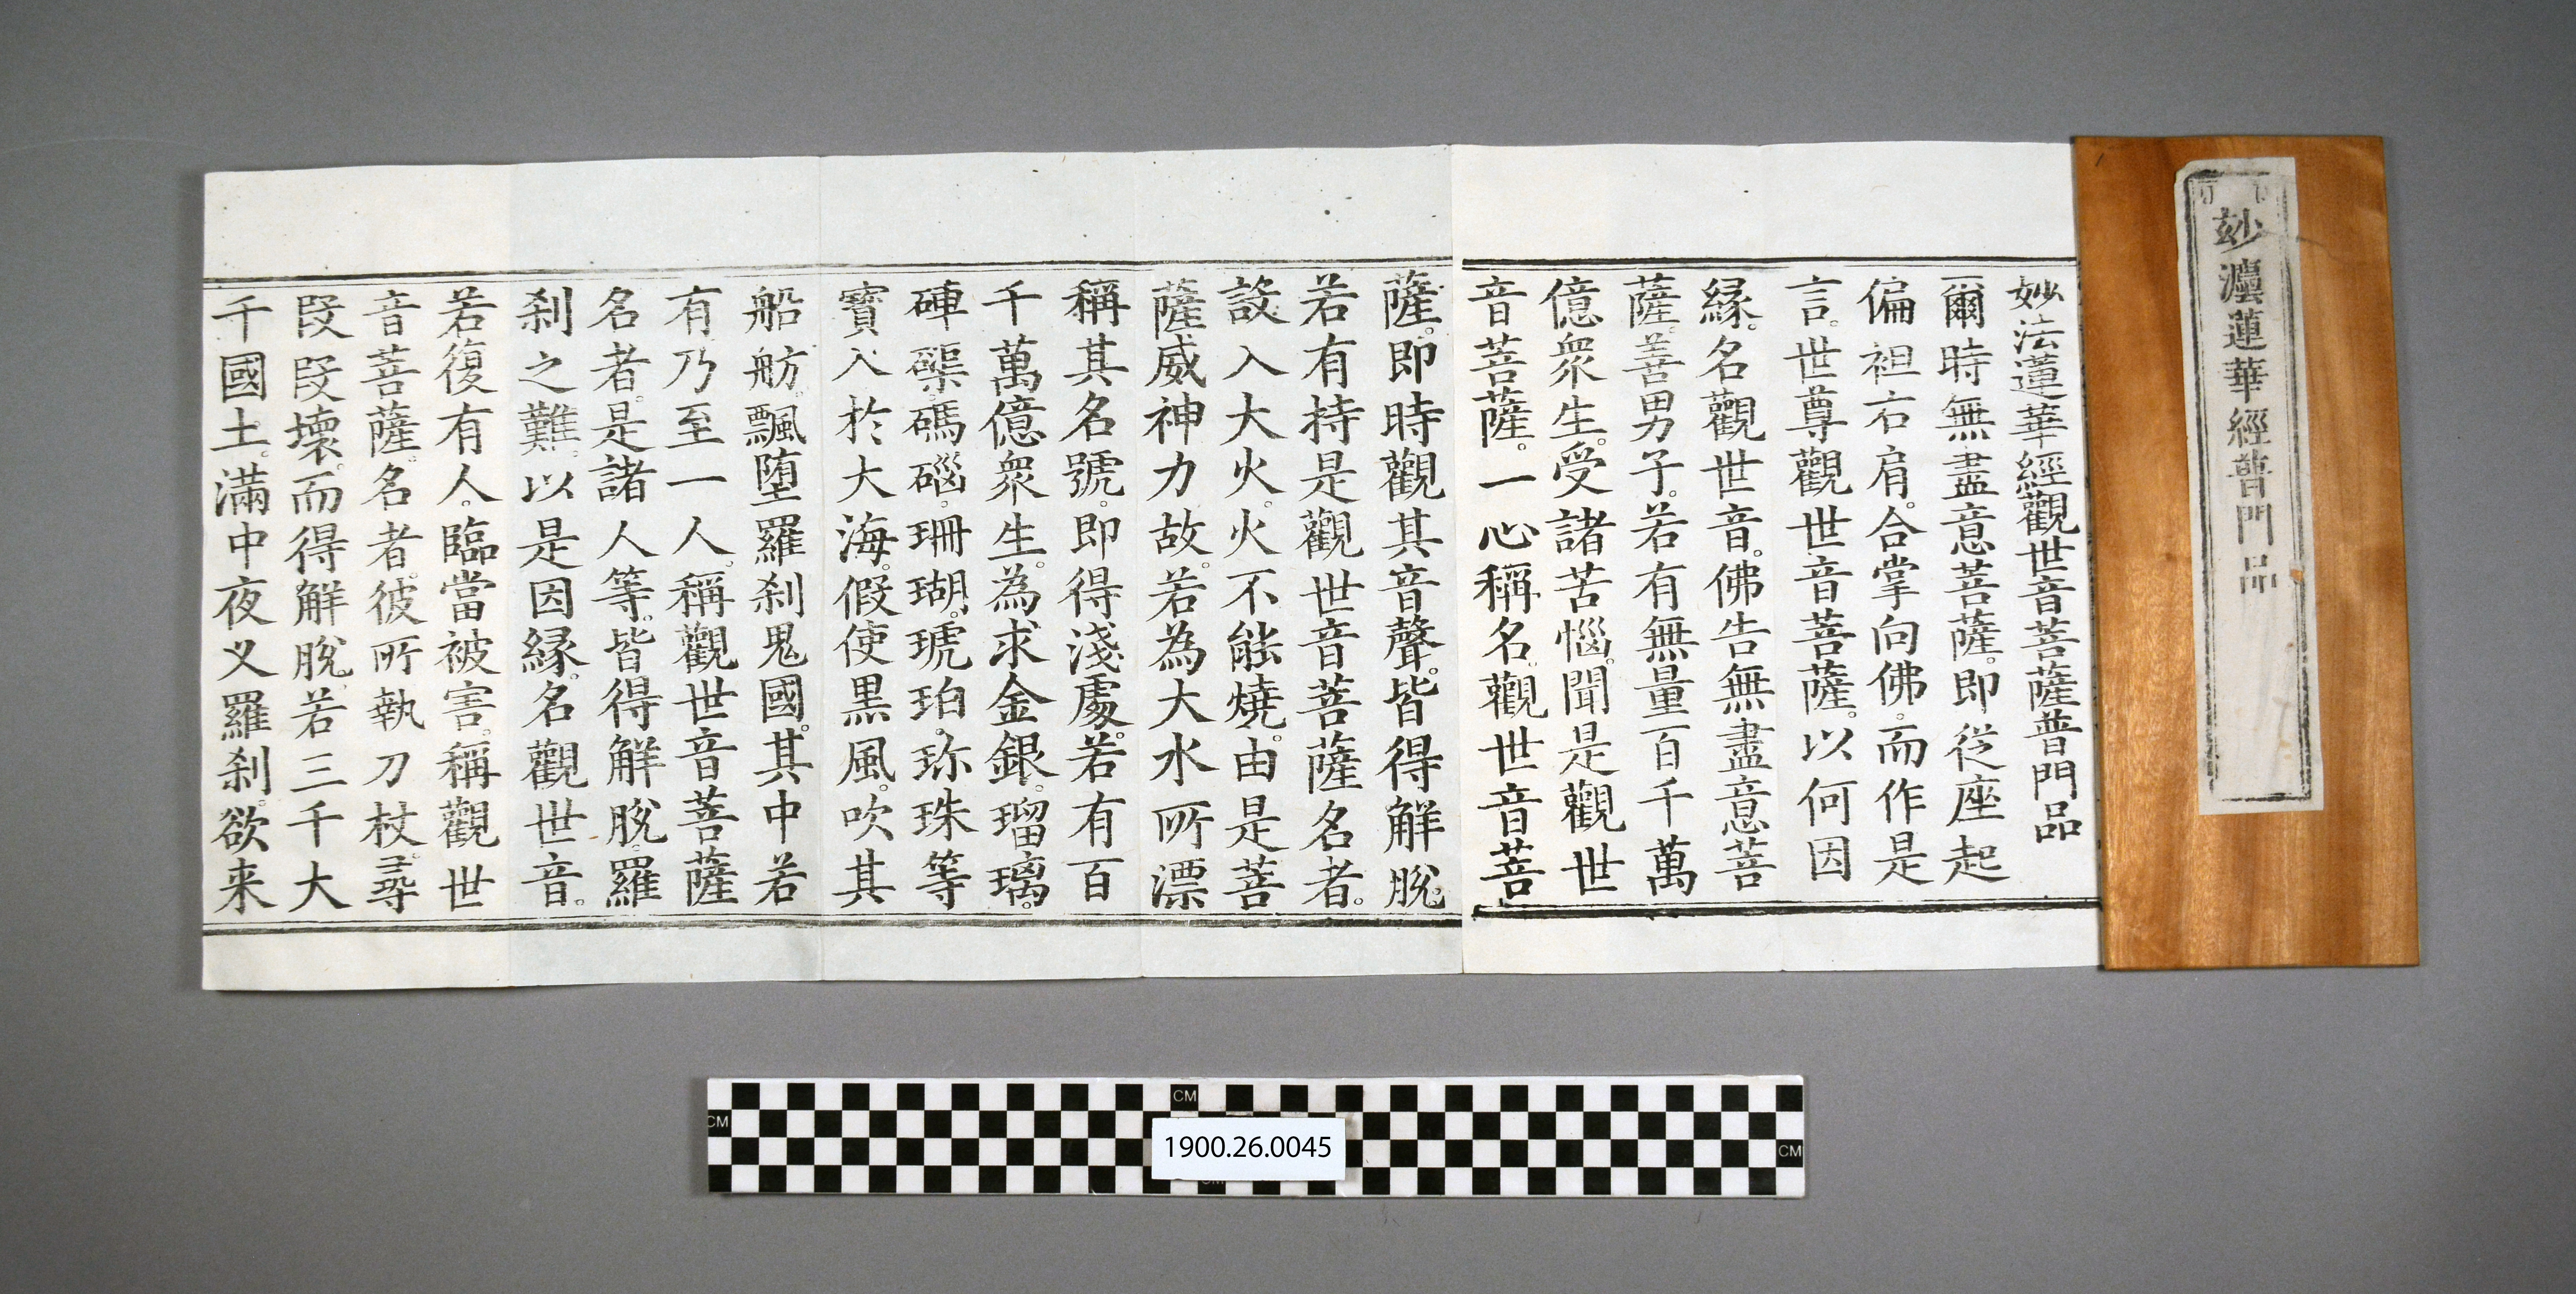 妙灋蓮華經普門品
妙法蓮華經觀世音菩薩普門品
爾時無盡意菩薩。即從座起
偏袒右肩。合掌向佛。而作是
言。世尊觀世音菩薩。以何因
緣。名觀世音。佛告無盡意菩
薩。善男子。若有無量百千萬
億衆生。受諸苦惱。聞是觀世
音菩薩。一心稱名。觀世音菩
薩。即時觀其音聲。皆得解脫。
若有持是觀世音菩薩名者。
設入大火。火不能燒。由是菩
薩威神力故。若為大水所漂
稱其名號。即得淺處。若有百
千萬億衆生。為求金銀。瑠璃。
硨磲。碼碯。珊瑚。琥珀。珎珠等
寶入於大海。假使黒風。吹其
船舫。飄堕羅刹鬼國。其中若
有乃至一人。稱觀世音菩薩
名者。是諸人等。皆得解脫。羅
刹之難。以是因緣。名觀世音。
若復有人。臨當被害。稱觀世
音菩薩。名者。彼所執刀杖。尋
段段壞。而得解脫。若三千大
千國土。滿中夜叉羅刹。欲来
CM
CM
CM
1900.26.0045